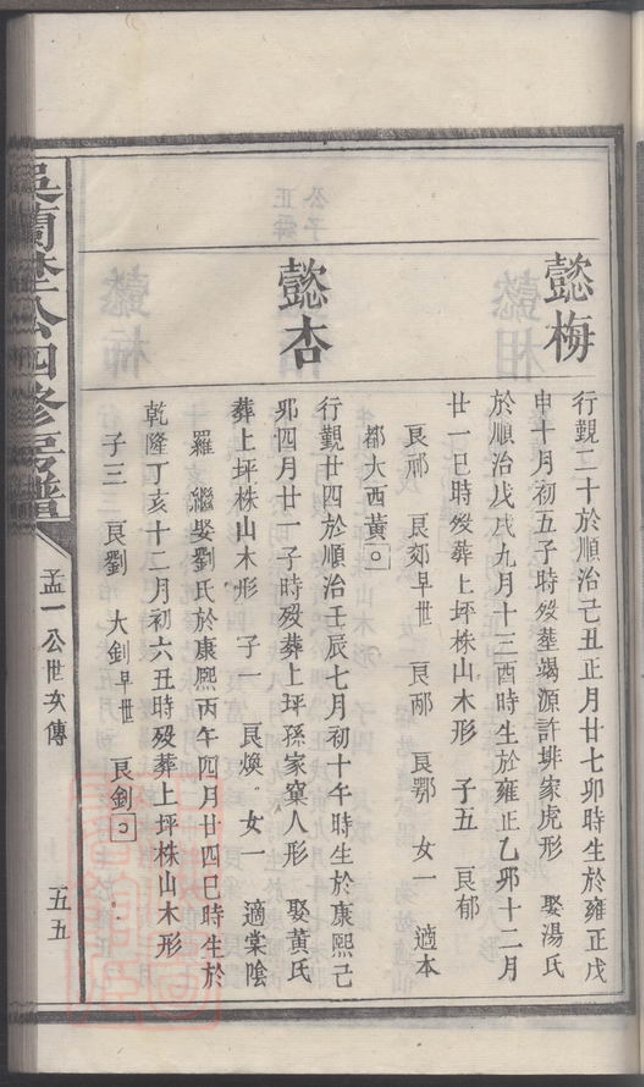 懿梅
行覲二十於順治己丑正月廿七卯時生於雍正戊
申十月初五子時歿葬竭源許排家虎形　娶湯氏
於順治戊戌九月十三酉時生於雍正乙丣十二月
廿一巳時歿葬上坪株山木形　子五　良郁
良邴　良郊早世　良邴　良鄂　女一　適本
都大西黃
懿杏
行覲廿四於順治壬辰七月初十午時生於康熙己
丣四月廿一子時歿葬上坪孫家窠人形　娶黃氏
葬上坪株山木形　子一　良煥　女一　適棠陰
羅　繼娶劉氏於康熙丙午四月廿四巳時生於
乾隆丁亥十二月初六丑時歿葬上坪株山木形
子三　良劉　大釗早世　良釗
吳蘭公四修房譜
孟一公世次傳
五五